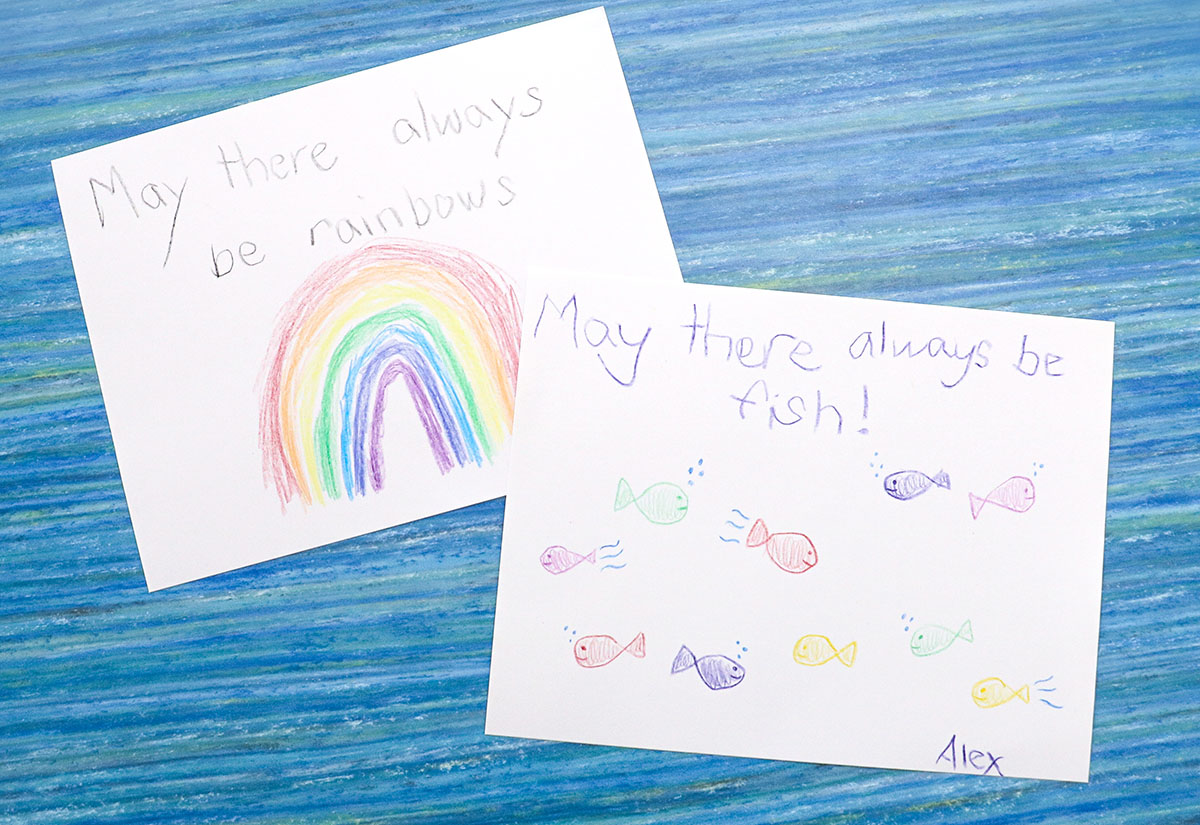 May there always
be rainbows
May there always be
fish!
Alex